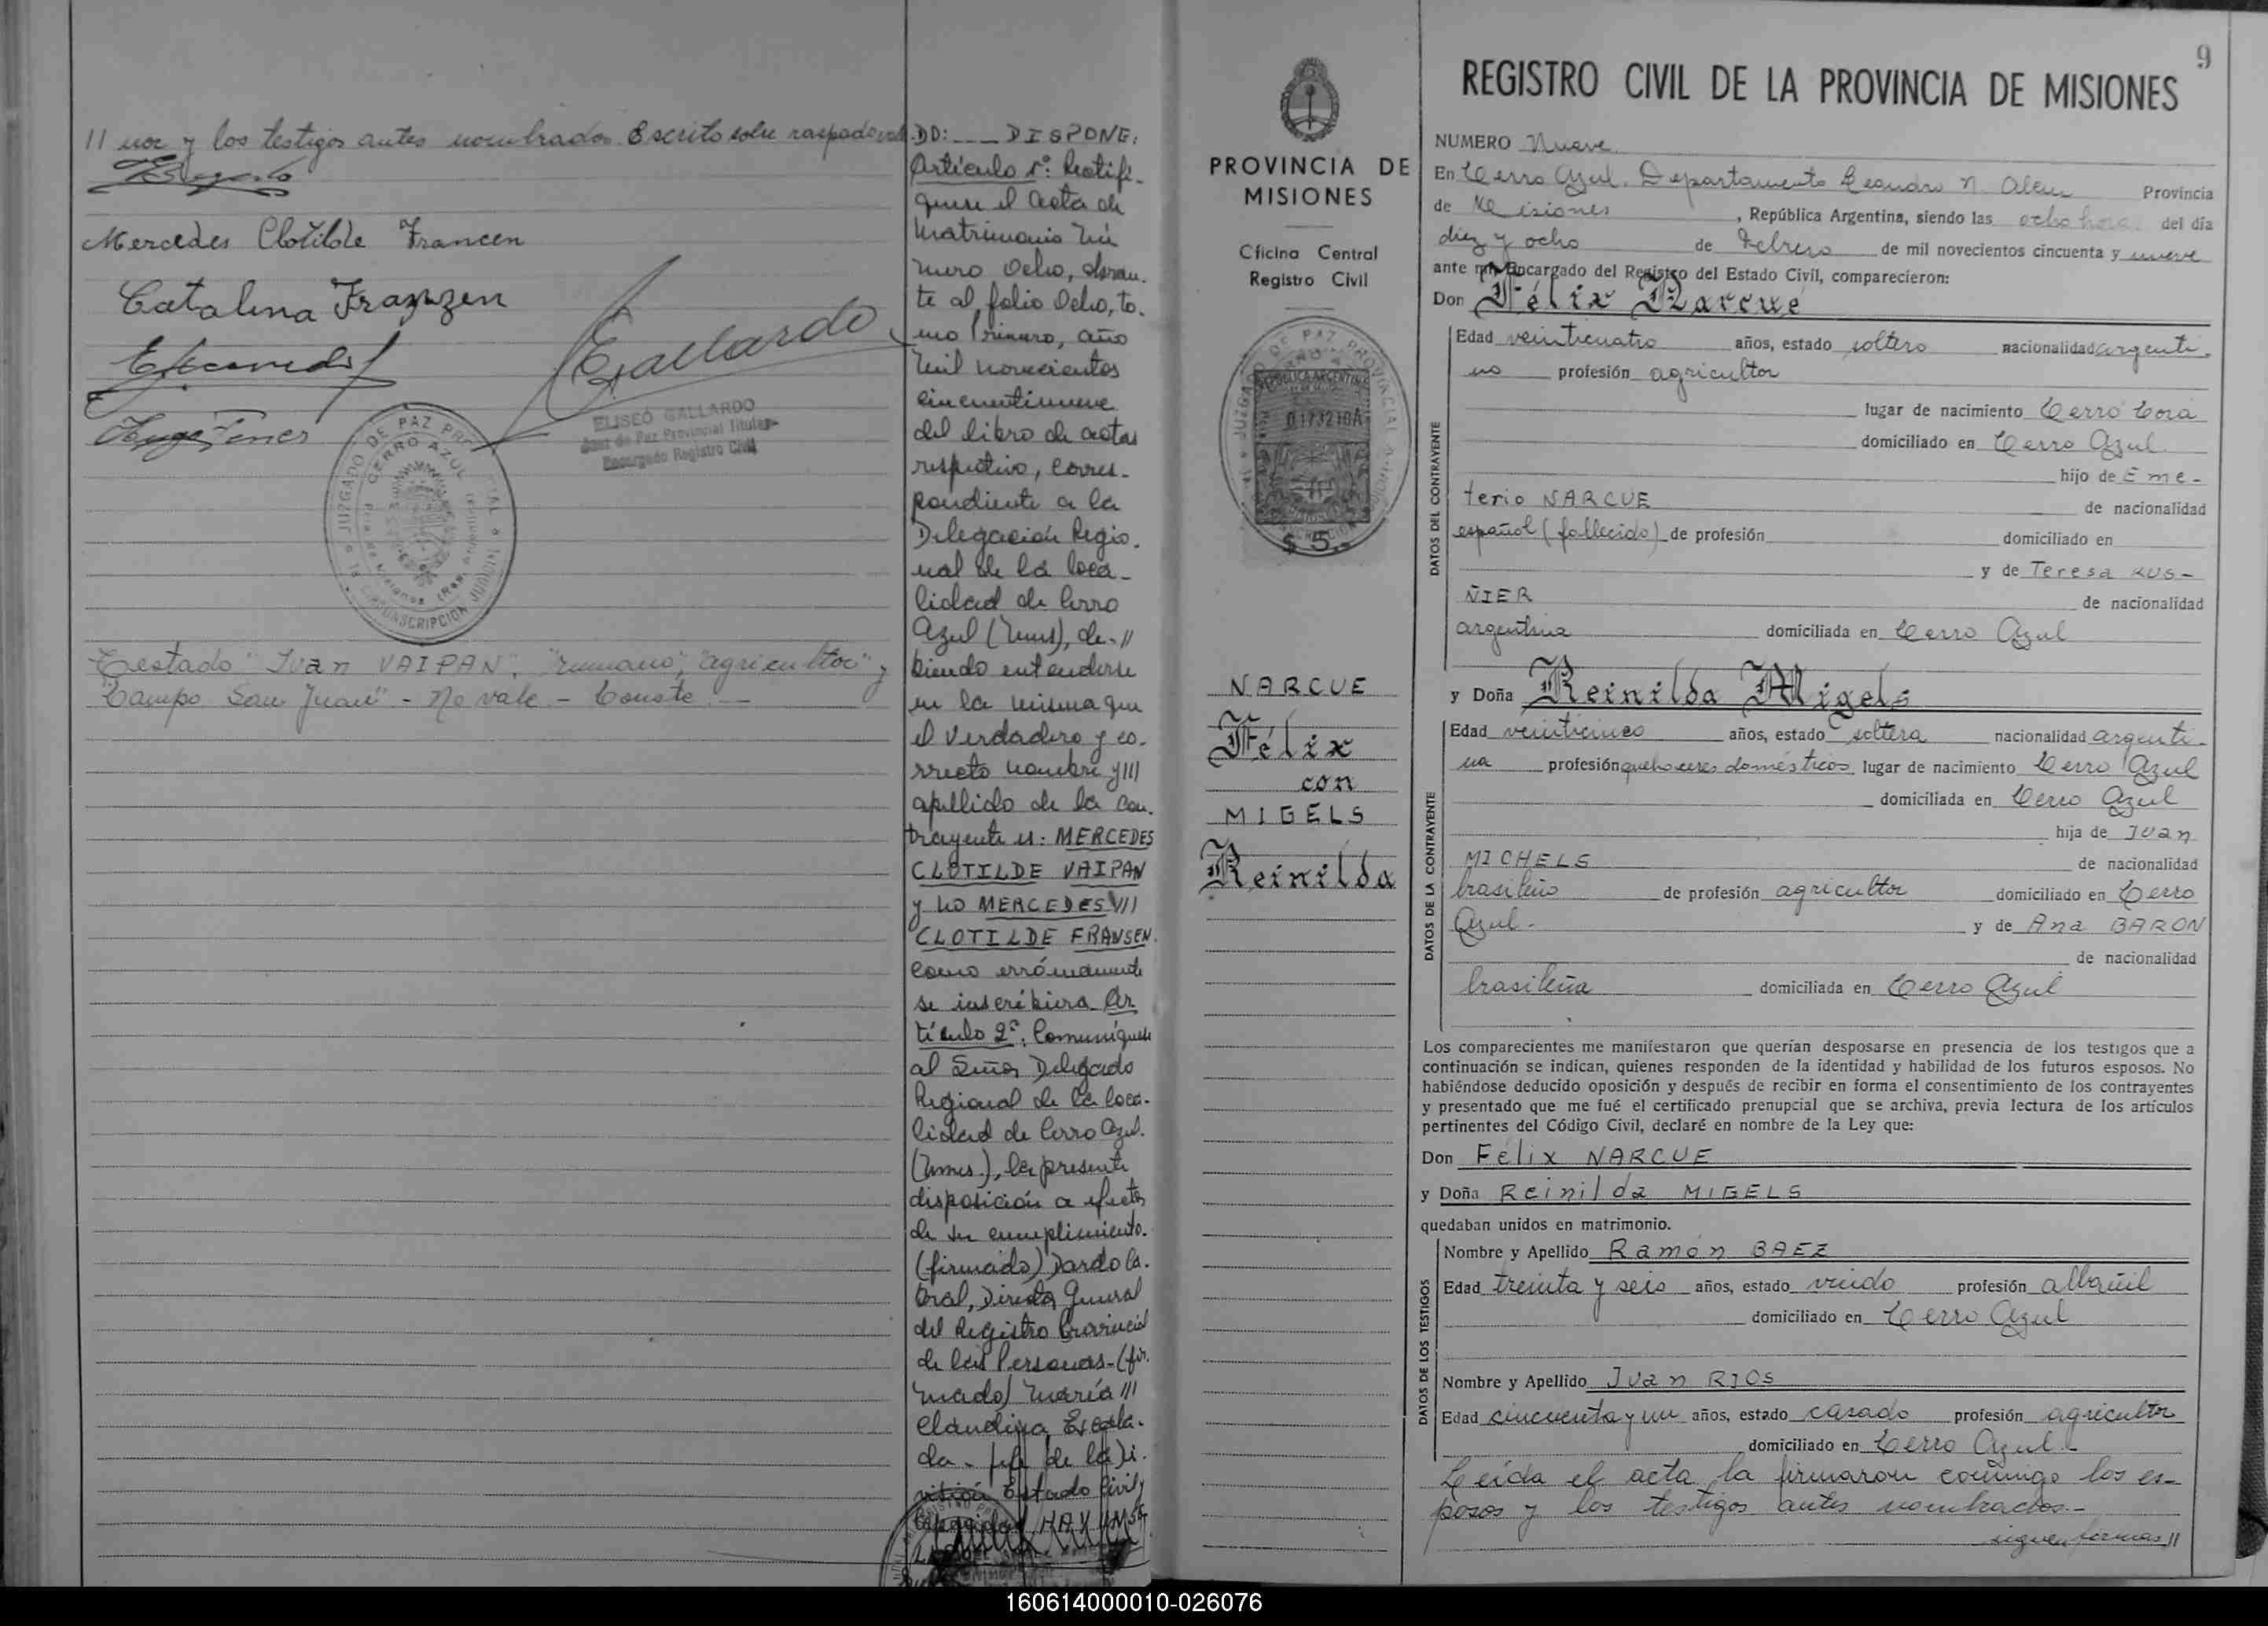 // nor y los testigos antes nombrados. Escrito sobre raspado: vale
Mercedes Clotilde Francen
Catalina Franzen
Gallardo
ELISEO GALLARDO
Juez de Paz Provincial Titular
Encargado Registro Civil
JUZGADO DE PAZ PROVINCIAL
CERRO AZUL
CIRCUNSCRIPCION JUDICIAL
Testado "Juan VAIPAN", "rumano", "agricultor" y
"Campo San Juan" - No vale - Conste. -
DO: ___ DISPONE:
Artículo 1º: Rectifí-
quese el acta de
Matrimonio Nú
mero Ocho, obran-
te al folio Ocho, to-
mo Primero, año
mil novecientos
cincuentinueve
del libro de actas
respectivo, corres-
pondiente a la
Delegación Regio-
nal de la loca-
lidad de Cerro
Azul (Mnes), de-//
biendo entenderse
en la misma que
el verdadero y co-
rrecto nombre y///
apellido de la con-
trayente es: MERCEDES
CLOTILDE VAIPAN
y no MERCEDES ///
CLOTILDE FRANSEN.
como erróneamente
se inscribiera. Ar
tículo 2º: Comuníquese
al Señor Delegado
Regional de la loca-
lidad de Cerro Azul.
(Mnes.), la presente
disposición a efectos
de su cumplimiento.
(firmado) Dardo Ca-
bral, Director General
del Registro Provincial
de las Personas-(fir-
mado) María ///
Claudina Escala-
da - Jefe de la Di-
visión Estado Civil y
9
REGISTRO CIVIL DE LA PROVINCIA DE MISIONES
PROVINCIA DE
MISIONES
Oficina Central
Registro Civil
JUZGADO DE PAZ PROVINCIAL
REPUBLICA ARGENTINA
$ 5.-
NARCUE
Félix
con
MIGELS
Reinilda
NUMERO Nueve
En Cerro Azul. Departamento Leandro N. Alem Provincia
de Misiones , República Argentina, siendo las ocho horas del día
diez y ocho de Febrero de mil novecientos cincuenta y nueve
ante mí, Encargado del Registro del Estado Civil, comparecieron:
Don Félix Narcué
DATOS DEL CONTRAYENTE
Edad veinticuatro años, estado soltero nacionalidad argenti-
no profesión agricultor
lugar de nacimiento Cerro Corá
domiciliado en Cerro Azul.
hijo de Eme-
terio NARCUE de nacionalidad
español (fallecido) de profesión domiciliado en
y de Teresa KUS-
ÑIER de nacionalidad
argentina domiciliada en Cerro Azul
y Doña Reinilda Migels
DATOS DE LA CONTRAYENTE
Edad veinticinco años, estado soltera nacionalidad argenti-
na profesión quehaceres domésticos lugar de nacimiento Cerro Azul
domiciliada en Cerro Azul
hija de Juan
MICHELS de nacionalidad
brasileño de profesión agricultor domiciliado en Cerro
Azul- y de Ana BARON
de nacionalidad
brasileña domiciliada en Cerro Azul
Los comparecientes me manifestaron que querían desposarse en presencia de los testigos que a
continuación se indican, quienes responden de la identidad y habilidad de los futuros esposos. No
habiéndose deducido oposición y después de recibir en forma el consentimiento de los contrayentes
y presentado que me fué el certificado prenupcial que se archiva, previa lectura de los artículos
pertinentes del Código Civil, declaré en nombre de la Ley que:
Don Félix NARCUE
y Doña Reinilda MIGELS
quedaban unidos en matrimonio.
DATOS DE LOS TESTIGOS
Nombre y Apellido Ramón BAEZ
Edad treinta y seis años, estado viudo profesión albañil
domiciliado en Cerro Azul
Nombre y Apellido Juan RIOS
Edad cincuenta y un años, estado casado profesión agricultor
domiciliado en Cerro Azul.
Leída el acta la firmaron conmigo los es-
posos y los testigos antes nombrados.-
siguen firmas //
160614000010-026076